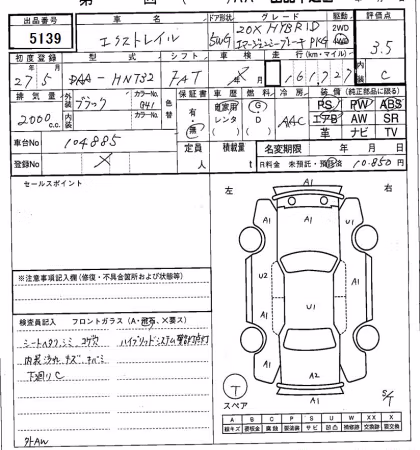 出品番号 車名 ドア形状 グレード 駆動 評価点
5139 エクストレイル 5WG 20X HYBRID 2WD 3.5
エマージェンシーブレーキ PKG 4WD
初度登録 型式 シフト 車検 走行(km・マイル) 内装
27年5月 DAA-HNT32 FAT 年X月 161,727 C
排気量 外装 ブラック カラーNo. G41 色替 保証書 車歴 燃料 冷房 装備(純正部品に限る)
2000c.c. 内装 カラーNo. 有・無 自家用 レンタ G D AAC PS PW ABS
エアB AW SR
革 ナビ TV
車台No 104885
登録No X
定員 人 積載量 t 名変期限 年 月 日
R料金 未預託・預託済 10,850円
セールスポイント
左 右
A1
A1 U1
U2 U1
A1
A1 A1
A2
A1
※注意事項記入欄(修復・不具合箇所および状態等)
検査員記入 フロントガラス(A・飛石・X要ス)
シートヘタリ、シミ コゲ穴 ハイブリッドシステム警告灯点灯
内装汚れ キズ
下廻りC
外AW
T
スペア
S/T
A B C P S U W X XX
線キズ